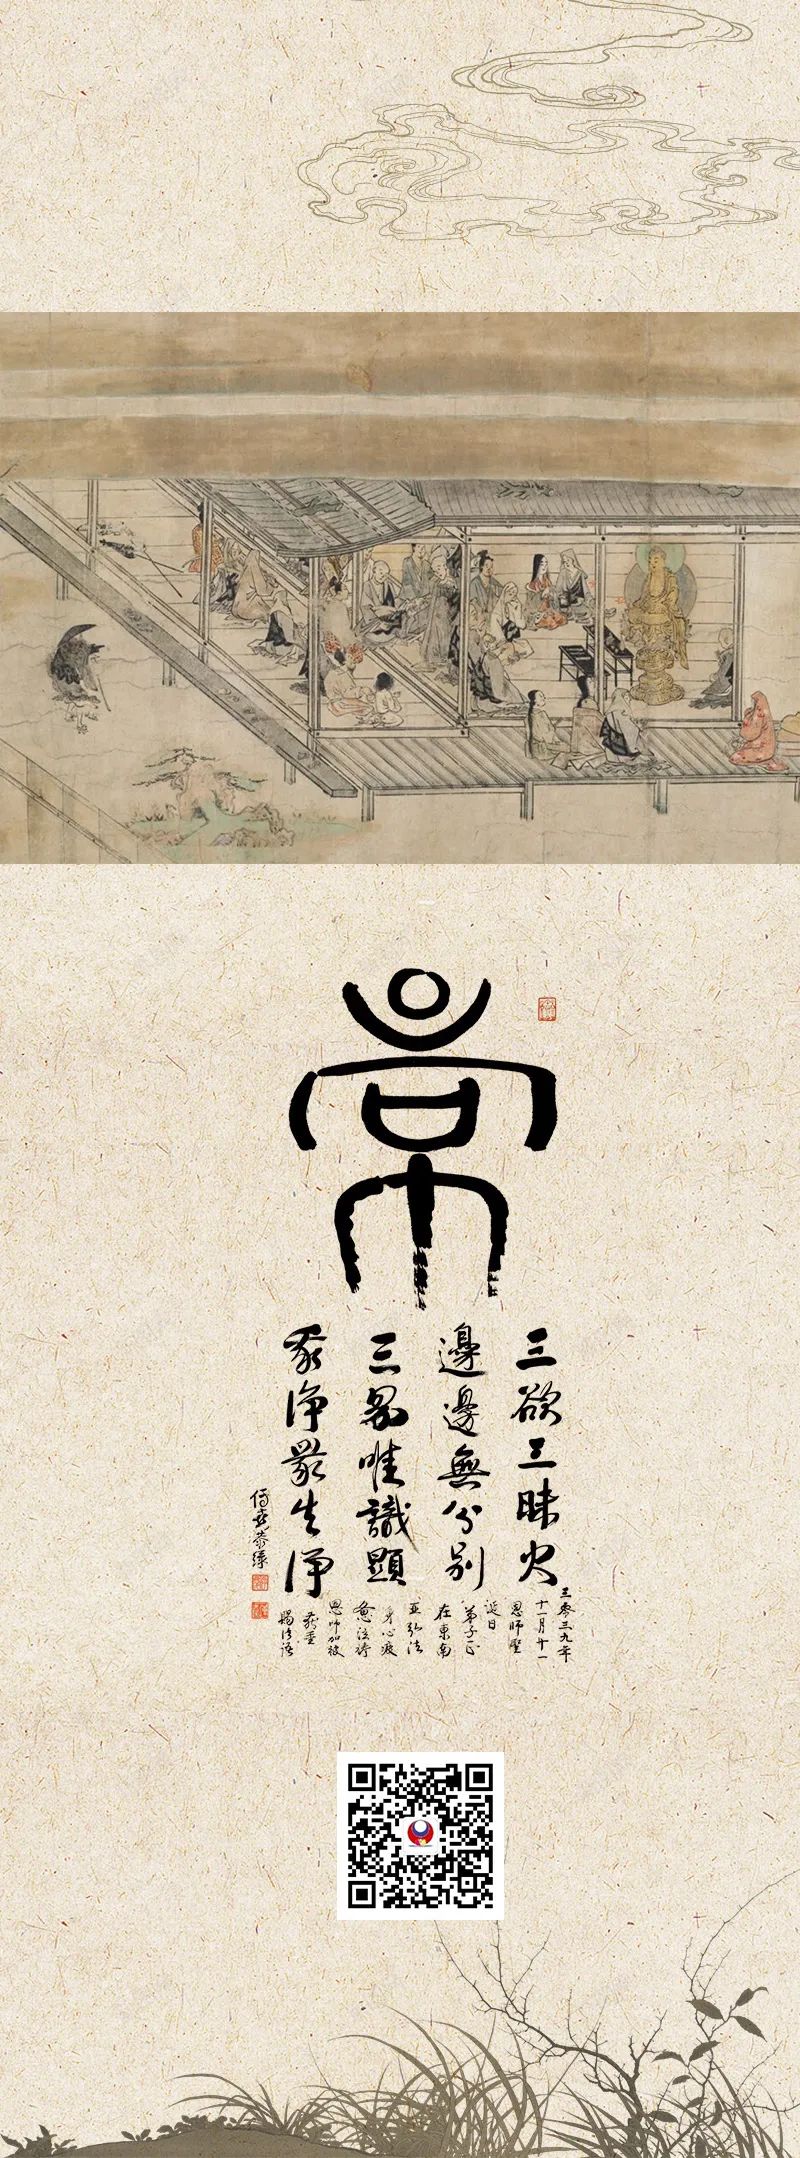 常
三欲三昧火
邊邊無分別
三界唯識顯
我淨眾生淨
三零三九年
十一月廿一
恩師聖
誕日
弟子正
在東南
亞弘法
身心疲
憊汝待
恩師加被
賜法語